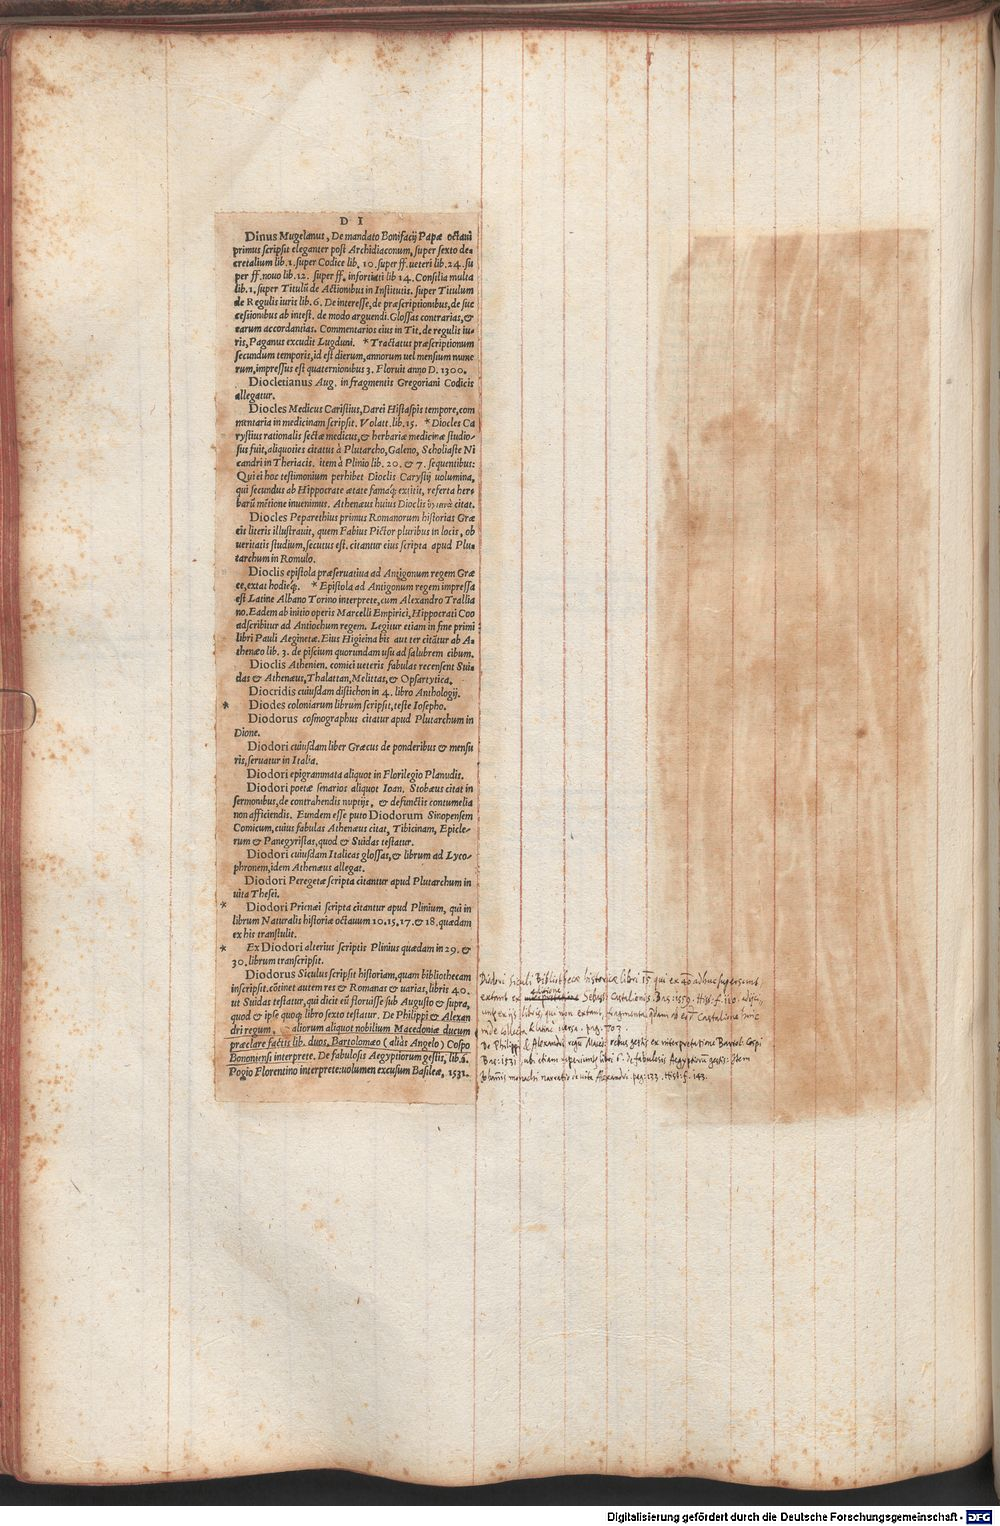 D I
Dinus Mugelanus, De mandato Bonifacij Papæ octaui
primus scripsit eleganter post Archidiaconum, super sexto de-
cretalium lib. 1. super Codice lib. 10. super ff. ueteri lib. 24. su
per ff. nouo lib. 12. super ff. infortiati lib 14. Consilia multa
lib. 1. super Titulũ de Actionibus in Institutis. super Titulum
de Regulis iuris lib. 6. De interesse, de præscriptionibus, de suc
cessionibus ab intest. de modo arguendi. Glossas contrarias, &
earum accordantias. Commentarios eius in Tit. de regulis iu-
ris, Paganus excudit Lugduni. * Tractatus præscriptionum
secundum temporis, id est dierum, annorum uel mensium nume
rum, impressus est quaternionibus 3. Floruit anno D. 1300.
Diocletianus Aug. in fragmentis Gregoriani Codicis
allegatur.
Diocles Medicus Caristius, Darei Histaspis tempore, com
mentaria in medicinam scripsit. Volatt. lib. 15. * Diocles Ca
rystius rationalis sectæ medicus, & herbariæ medicinæ studio-
sus fuit, aliquoties citatus à Plutarcho, Galeno, Scholiaste Ni
candri in Theriacis. item à Plinio lib. 20. & 7. sequentibus:
Qui ei hoc testimonium perhibet Dioclis Carystij uolumina,
qui secundus ab Hippocrate ætate famaq́; extitit, referta her-
barũ mẽtione inuenimus. Athenæus huius Dioclis citat.
Diocles Peparethius primus Romanorum historias Græ
cis literis illustrauit, quem Fabius Pictor pluribus in locis, ob
ueritatis studium, secutus est. citantur eius scripta apud Plu-
tarchum in Romulo.
Dioclis epistola præseruatiua ad Antigonum regem Græ
ce, extat hodieq́;. * Epistola ad Antigonum regem impressa
est Latine Albano Torino interprete, cum Alexandro Trallia
no. Eadem ab initio operis Marcelli Empirici, Hippocrati Coo
adscribitur ad Antiochum regem. Legitur etiam in fine primi
libri Pauli Aeginetæ. Eius Higieina bis aut ter citãtur ab A-
thenæo lib. 3. de piscium quorundam usu ad salubrem cibum.
Dioclis Athenien. comici ueteris fabulas recensent Sui-
das & Athenæus, Thalattan, Melittas, & Opsartytica.
Diocridis cuiusdam distichon in 4. libro Anthologij.
* Diodes coloniarum librum scripsit, teste Iosepho.
Diodorus cosmographus citatur apud Plutarchum in
Dione.
Diodori cuiusdam liber Græcus de ponderibus & mensu
ris, seruatur in Italia.
Diodori epigrammata aliquot in Florilegio Planudis.
Diodori poetæ senarios aliquot Ioan. Stobæus citat in
sermonibus, de contrahendis nuptijs, & defunctis contumelia
non afficiendis. Eundem esse puto Diodorum Sinopensem
Comicum, cuius fabulas Athenæus citat, Tibicinam, Epicle-
rum & Panegyristas, quod & Suidas testatur.
Diodori cuiusdam Italicas glossas, & librum ad Lyco-
phronem, idem Athenæus allegat.
Diodori Peregetæ scripta citantur apud Plutarchum in
uita Thesei.
* Diodori Prienæi scripta citantur apud Plinium, qui in
librum Naturalis historiæ octauum 10. 15. 17. & 18. quædam
ex his transtulit.
* Ex Diodori alterius scriptis Plinius quædam in 29. &
30. librum transcripsit.
Diodorus Siculus scripsit historiam, quam bibliothecam
inscripsit. cõtinet autem res & Romanas & uarias, libris 40.
ut Suidas testatur, qui dicit eũ floruisse sub Augusto & supra,
quod & ipse quoq́; libro sexto testatur. De Philippi & Alexan
dri regum, aliorum aliquot nobilium Macedoniæ ducum
præclare factis lib. duos, Bartolomæo (aliàs Angelo) Cospo
Bononiensi interprete. De fabulosis Aegyptiorum gestis, lib. 6.
Pogio Florentino interprete: uolumen excusum Basileæ, 1531.
Diodori Siculi Bibliothecæ historicæ libri 15 qui ex 40 adhuc supersunt
extant ex editione Sebast. Castalionis. Bas: 1559. Hist: f. 120.
libris, qui non extant, fragmenta Castalione hinc
inde collecta & latine versa. pag. 703.
De Philippi & Alexandri regũ Maced: rebus gestis ex interpretatione Bartol: Cospi
Bas: 1531 ubi etiam reperiuntur libri 6. de fabulosis Aegyptiorũ gestis: Item
monachi narratio de vita Alexandri pag: 133. Hist: f. 143.
Digitalisierung gefördert durch die Deutsche Forschungsgemeinschaft - DFG